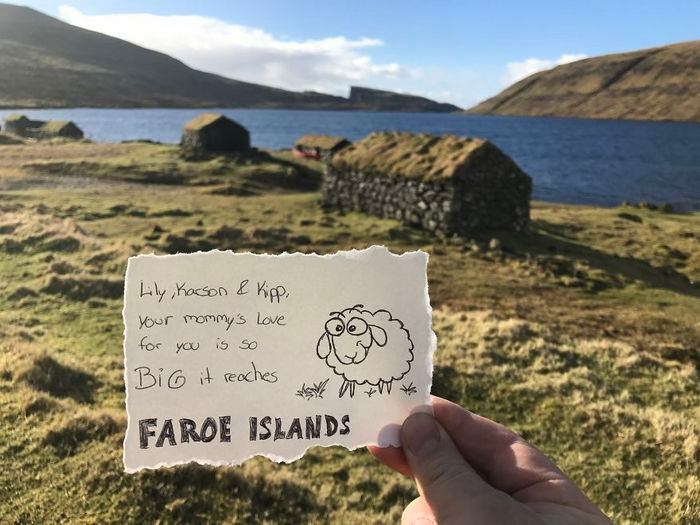 Lily, Kacson & Kipp,
your mommy's Love
for you is so
BiG it reaches
FAROE ISLANDS